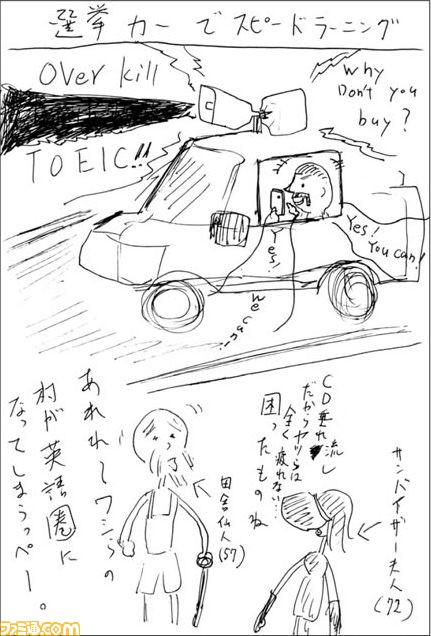 選挙カーでスピードラーニング
Over kill
TOEIC!!
Why
Don't you
buy?
Yes!
You can!
Yes!
We can!
CD垂れ流し
だからヤツらは
全く疲れない…
困ったものね
サンバイザー夫人
(72)
あれれ〜ワシらの
村が英語圏に
なってしまうっぺー。
田舎仙人
(57)
ファミ通.com